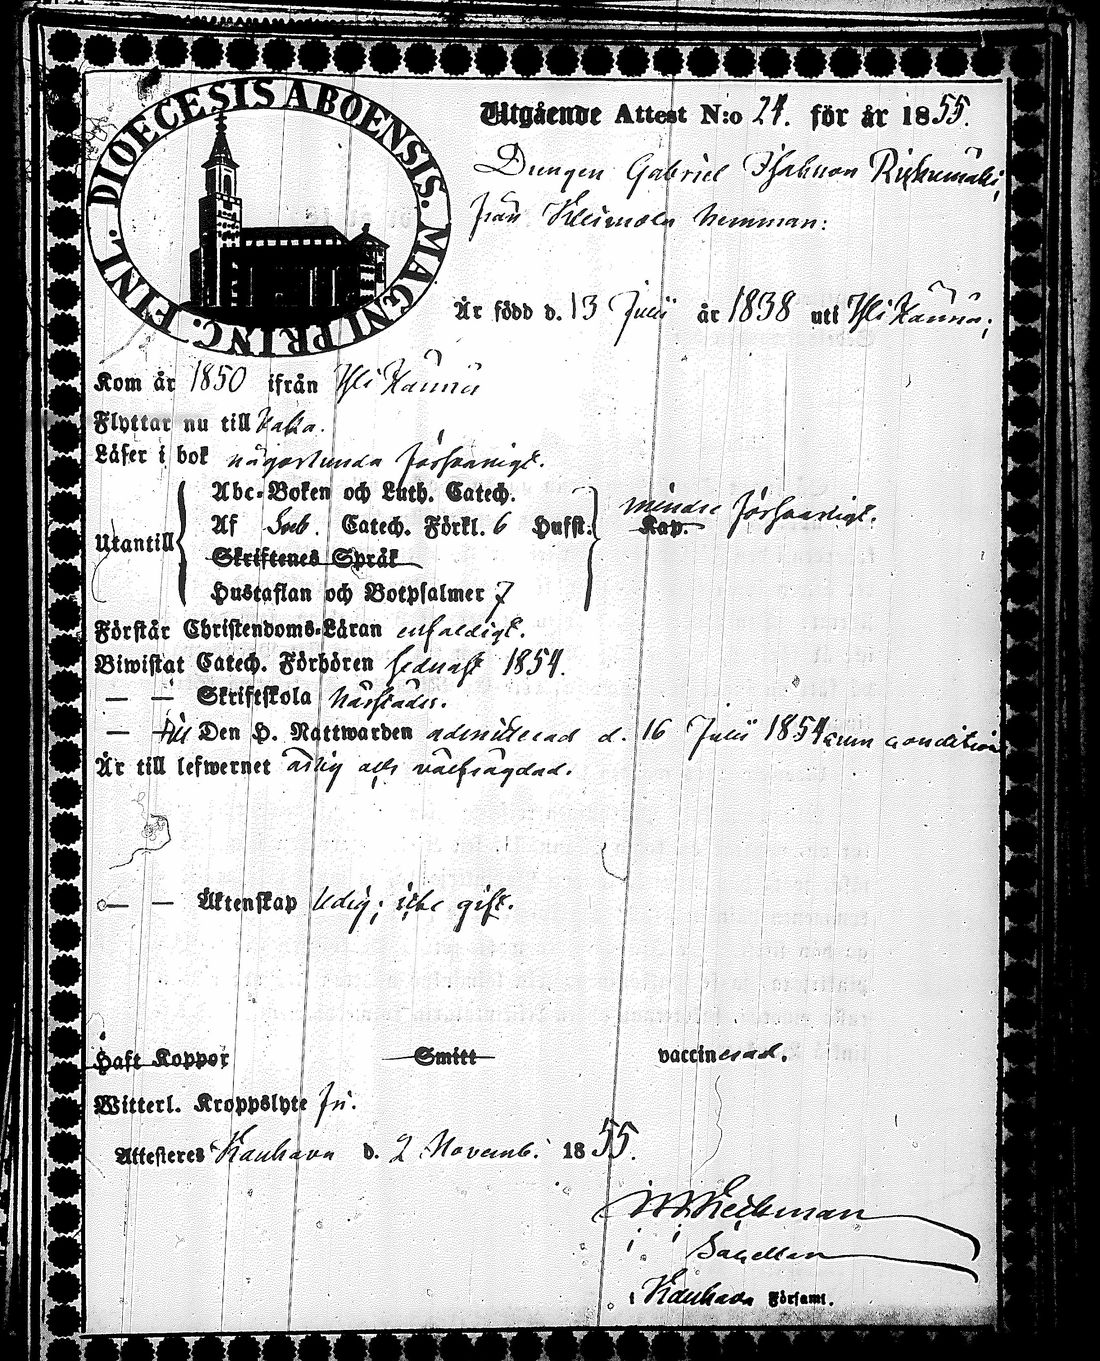 DIOECESIS ABOENSIS. MAGNI PRINC. FINL.
Utgående Attest N:o 24. för år 1855.
Drengen Gabriel Isaksson
från hemman:
Är född d. 13 Julii år 1838 uti Yli Kannus;
Kom år 1850 ifrån Yli Kannus
Flyttar nu till
Läser i bok någorlunda försvarligt.
Abc-Boken och Luth. Catech.
mindre försvarligt.
Utantill Af Sveb. Catech. Förkl. 6 Hufst. Kap.
Skriftenes Språk
Hustaflan och Botpsalmer 7
Förstår Christendoms-Läran enfaldigt.
Biwistat Catech. Förhören sednast 1854.
— — Skriftskola
— — till Den H. Nattwarden admitterad d. 16 Julii 1854 cum condition
Är till lefwernet ärlig och välfrägdad.
— — Äktenskap ledig; icke gift.
Haft Koppor Smitt vaccinerad.
Witterl. Kroppslyte Fri.
Attesteres Kauhava d. 2 Novemb. 1855.
Sacellan
i Kauhava Församl.